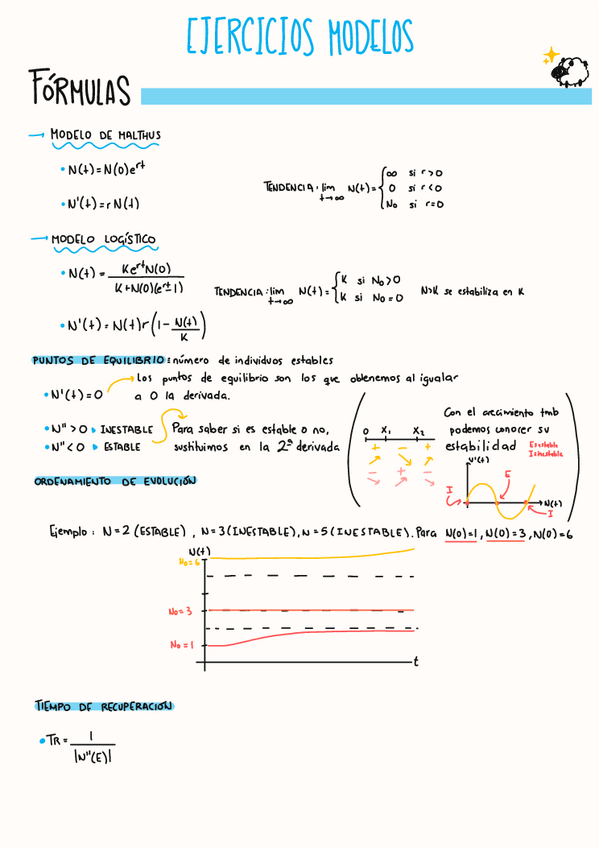 EJERCICIOS MODELOS
FÓRMULAS
→ MODELO DE MALTHUS
• N(t)=N(0)e^rt
• N'(t)=r N(t)
TENDENCIA: lim t→∞ N(t)= { ∞ si r>0
0 si r<0
N₀ si r=0
→ MODELO LOGÍSTICO
• N(t)= Ke^rt N(0) / K+N(0)(e^rt-1)
TENDENCIA: lim t→∞ N(t)= { K si N₀>0
K si N₀=0
N>K se estabiliza en K
• N'(t)=N(t)r(1- N(t)/K)
PUNTOS DE EQUILIBRIO: número de individuos estables
• N'(t)=0
Los puntos de equilibrio son los que obtenemos al igualar
a 0 la derivada.
• N''>0 ▸ INESTABLE
• N''<0 ▸ ESTABLE
Para saber si es estable o no,
sustituimos en la 2ª derivada
0 X₁ X₂
+ - +
- + -
Con el crecimiento tmb
podemos conocer su
estabilidad
E=estable
I=inestable
N'(t)
I
E
I
N(t)
ORDENAMIENTO DE EVOLUCIÓN
Ejemplo: N=2 (ESTABLE), N=3 (INESTABLE), N=5 (INESTABLE). Para N(0)=1, N(0)=3, N(0)=6
N(t)
N₀=6
N₀=3
N₀=1
t
TIEMPO DE RECUPERACIÓN
• TR= 1 / |N''(E)|